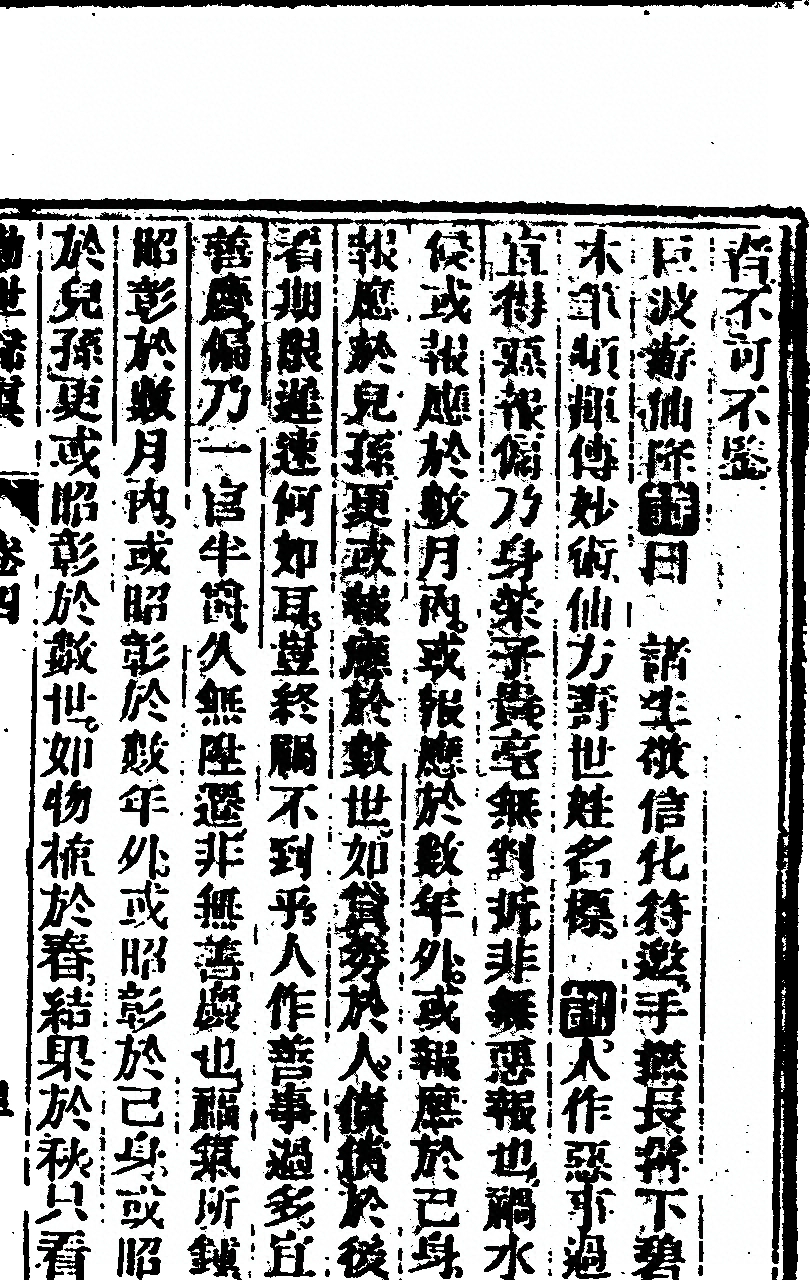 者不可不鑒
臣波衍仙降詩曰　諸生敬信化符邀手撚長髯下碧
木年頃鄞傳妙術仙方壽世姓名標　訓人作惡事過
宜得惡報偏乃身榮子貴毫無剉折非無惡報也禍水
候或報應於數月內或報應於數年外或報應於己身
報應於兒孫更或報應於數世如貸券於人償債於後
看期限遲速何如耳豈終禍不到乎人作善事過多宜
善慶偏乃一官半職久無陞遷非無善慶也福氣所鍾
昭彰於數月內或昭彰於數年外或昭彰於己身或昭
於兒孫更或昭彰於數世如物植於春結果於秋只看
卷四